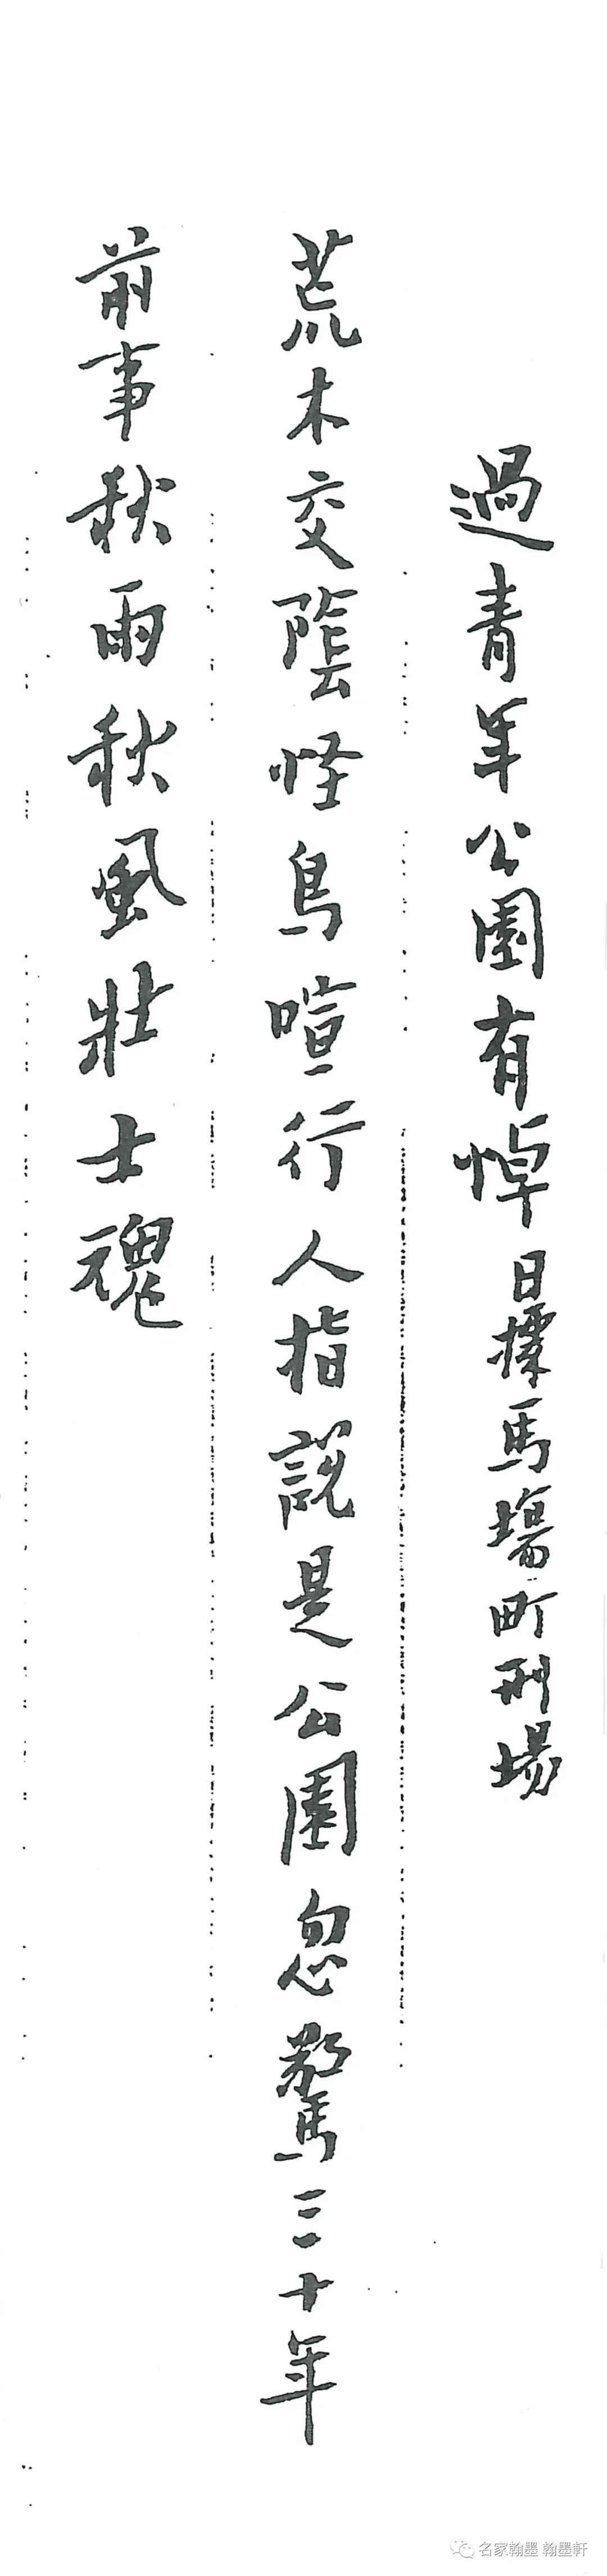 過青年公園有悼 日據馬場町刑場
荒木交陰怪鳥喧行人指說是公園忽驚三十年
前事秋雨秋風壯士魂
名家翰墨 翰墨軒